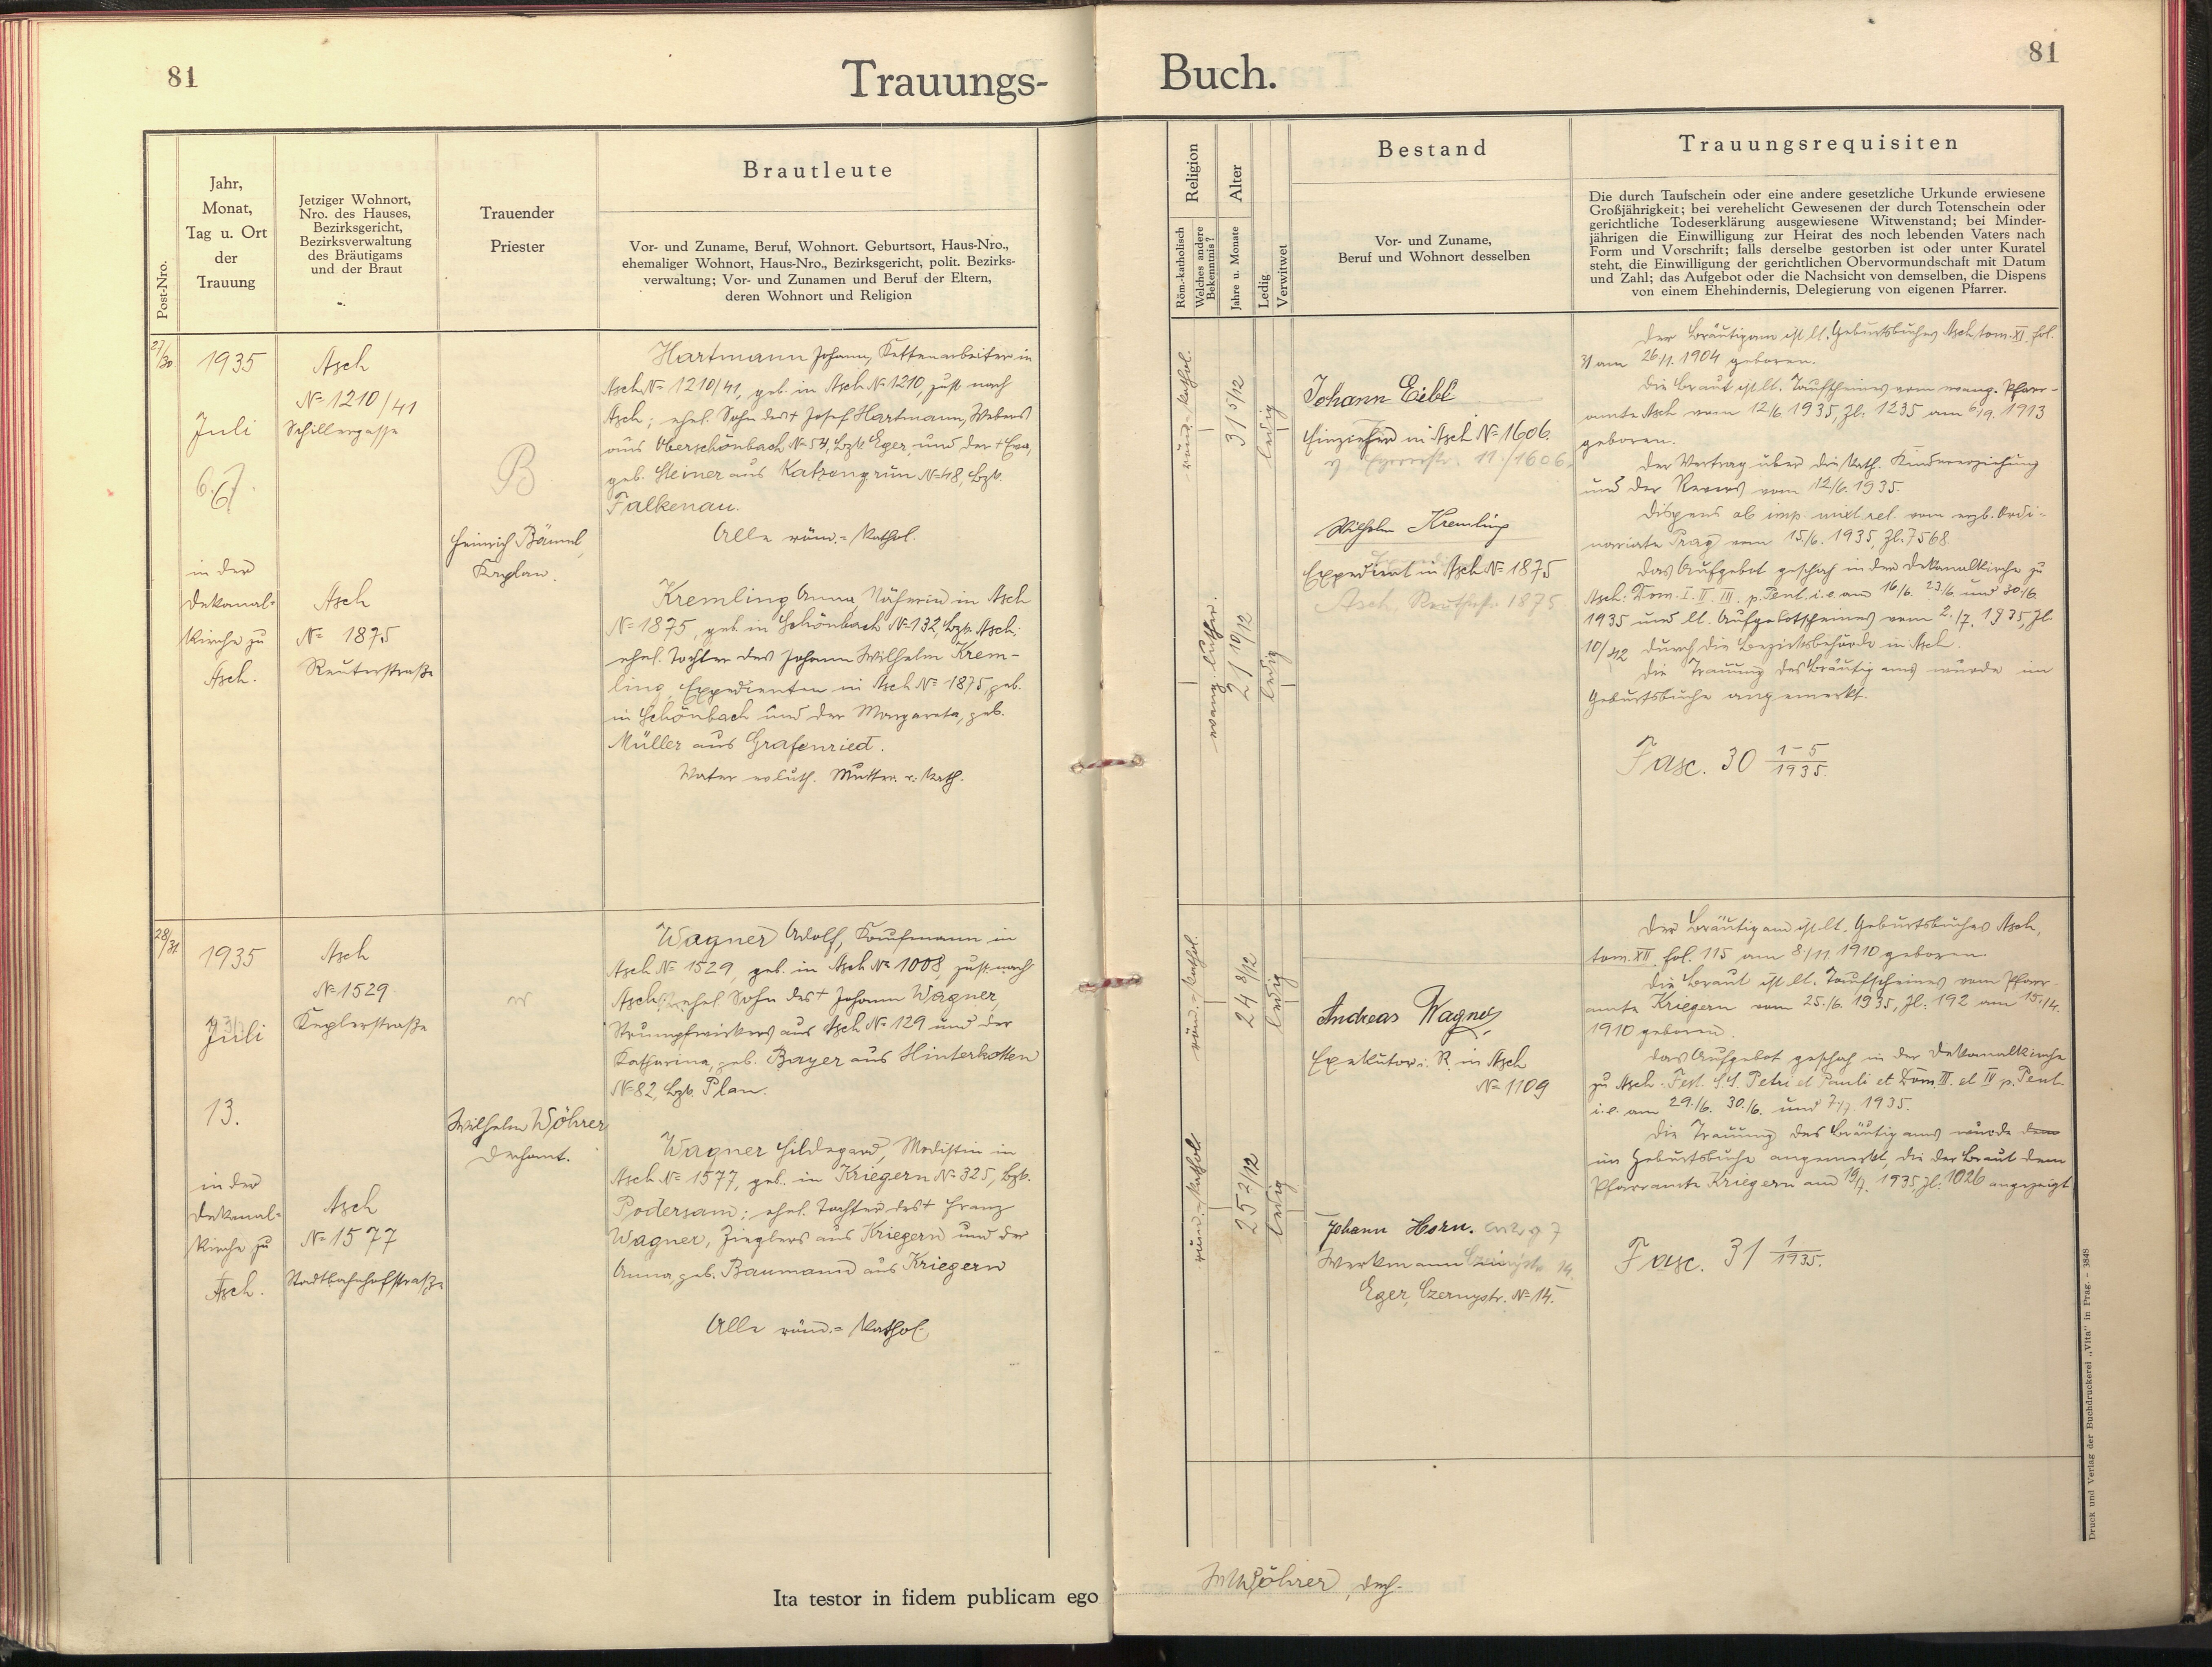 81
Trauungs-
Post-Nro.
Jahr,
Monat,
Tag u. Ort
der
Trauung
Jetziger Wohnort,
Nro. des Hauses,
Bezirksgericht,
Bezirksverwaltung
des Bräutigams
und der Braut
Trauender
Priester
Brautleute
Vor- und Zuname, Beruf, Wohnort. Geburtsort, Haus-Nro.,
ehemaliger Wohnort, Haus-Nro., Bezirksgericht, polit. Bezirks-
verwaltung; Vor- und Zunamen und Beruf der Eltern,
deren Wohnort und Religion
27/30
1935
Juli
6.
in der
Dekanal-
kirche zu
Asch.
Asch
No 1210/41
Schillergasse
Asch
No 1875
Reuterstraße
B
Heinrich Bäuml,
Kaplan.
Hartmann Johann, Kettenarbeiter in
Asch No 1210/41, geb. in Asch No 1210, zust. nach
Asch; ehel. Sohn des † Josef Hartmann, Webers
aus Oberschönbach No 54, Bzk. Eger, und der † Eva,
geb. Steiner aus Katzengrün No 48, Bzk.
Falkenau.
Alle röm.-kathol.
Kremling Anna, Näherin in Asch
No 1875, geb. in Schönbach No 132, Bzk. Asch;
ehel. Tochter des Johann Wilhelm Krem-
ling, Expedienten in Asch No 1875, geb.
in Schönbach und der Margareta, geb.
Müller aus Grafenried.
Vater ev. luth. Mutter r. kath.
28/31
1935
Juli
13.
in der
Dekanal-
kirche zu
Asch.
Asch
No 1529
Keplerstraße
Asch
No 1577
Stadtbahnhofstraße
Wilhelm Wöhrer
Dechant.
Wagner Adolf, Kaufmann in
Asch No 1529, geb. in Asch No 1008, zust. nach
Asch; ehel. Sohn des † Johann Wagner,
Strumpfwirkers aus Asch No 129 und der
Katharina, geb. Bayer aus Hinterkotten
No 82, Bzk. Plan.
Wagner Hildegard, Modistin in
Asch No 1577, geb. in Kriegern No 325, Bzk.
Podersam; ehel. Tochter des † Franz
Wagner, Zieglers aus Kriegern und der
Anna, geb. Baumann aus Kriegern
Alle röm.-kathol.
Ita testor in fidem publicam ego
Buch.
81
Religion
Röm.-katholisch
Welches andere
Bekenntnis?
Alter
Jahre u. Monate
Ledig
Verwitwet
Bestand
Vor- und Zuname,
Beruf und Wohnort desselben
Trauungsrequisiten
Die durch Taufschein oder eine andere gesetzliche Urkunde erwiesene
Großjährigkeit; bei verehelicht Gewesenen der durch Totenschein oder
gerichtliche Todeserklärung ausgewiesene Witwenstand; bei Minder-
jährigen die Einwilligung zur Heirat des noch lebenden Vaters nach
Form und Vorschrift; falls derselbe gestorben ist oder unter Kuratel
steht, die Einwilligung der gerichtlichen Obervormundschaft mit Datum
und Zahl; das Aufgebot oder die Nachsicht von demselben, die Dispens
von einem Ehehindernis, Delegierung von eigenen Pfarrer.
röm.-kathol.
31 5/12
ledig
evang. luther.
21 10/12
ledig
Johann Eibl
Einzieher in Asch No 1606.
Wilhelm Kremling
Expedient in Asch No 1875
Der Bräutigam ist lt. Geburtsbuches Asch tom. XI. fol.
31 am 26/1. 1904 geboren.
Die Braut ist lt. Taufscheines vom evang. Pfarr-
amte Asch vom 12/6. 1935, Zl. 1235 am 6/9. 1913
geboren.
Der Vertrag über die kath. Kindererziehung
und der Revers vom 12/6. 1935.
Dispens ab imp. mixt. rel. vom erzb. Ordi-
nariate Prag vom 15/6. 1935, Zl. 7568
Das Aufgebot geschah in der Dekanalkirche zu
Asch: Dom. I. II. III. p. Pent. i. e. am 16/6. 23/6. und 30/6.
1935 und lt. Aufgebotscheines vom 2./7. 1935, Zl.
10/42 durch die Bezirksbehörde in Asch.
Die Trauung des Bräutigams wurde im
Geburtsbuche angemerkt.
Fasc. 30 1-5/1935.
röm.-kathol.
24 8/12
ledig
röm.-kathol.
25 2/12
ledig
Andreas Wagner
Exekutor i. R. in Asch
No 1109
Johann Horn.
Werkmann
Eger, Czernystr. No 14.
Der Bräutigam ist lt. Geburtsbuches Asch,
tom. XII. fol. 115 am 8/11 1910 geboren.
Die Braut ist lt. Taufscheines vom Pfarr-
amte Kriegern vom 25./6. 1935, Zl. 192 am 15./4.
1910 geboren.
Das Aufgebot geschah in der Dekanalkirche
zu Asch: Fest. S.S. Petri et Pauli et Dom. III. et IV p. Pent.
i. e. am 29./6. 30./6. und 7./7. 1935.
Die Trauung des Bräutigams wurde dem
im Geburtsbuche angemerkt, die der Braut dem
Pfarramte Kriegern am 19/7. 1935, Zl. 1026 angezeigt
Fasc. 31 1/1935.
Wöhrer, Dech.
Druck und Verlag der Buchdruckerei „Vita" in Prag. - 3848